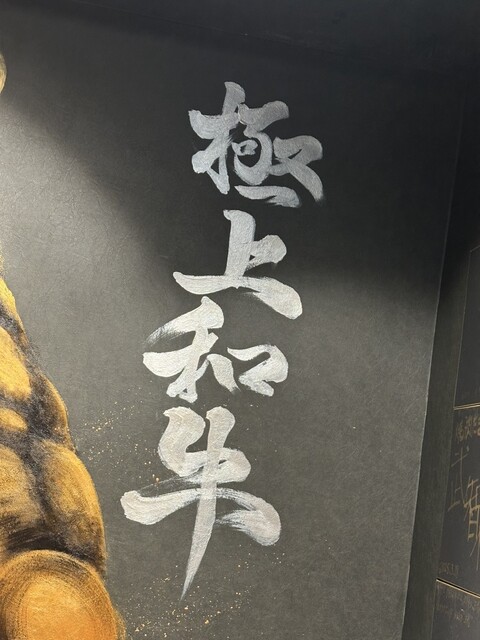 極上和牛